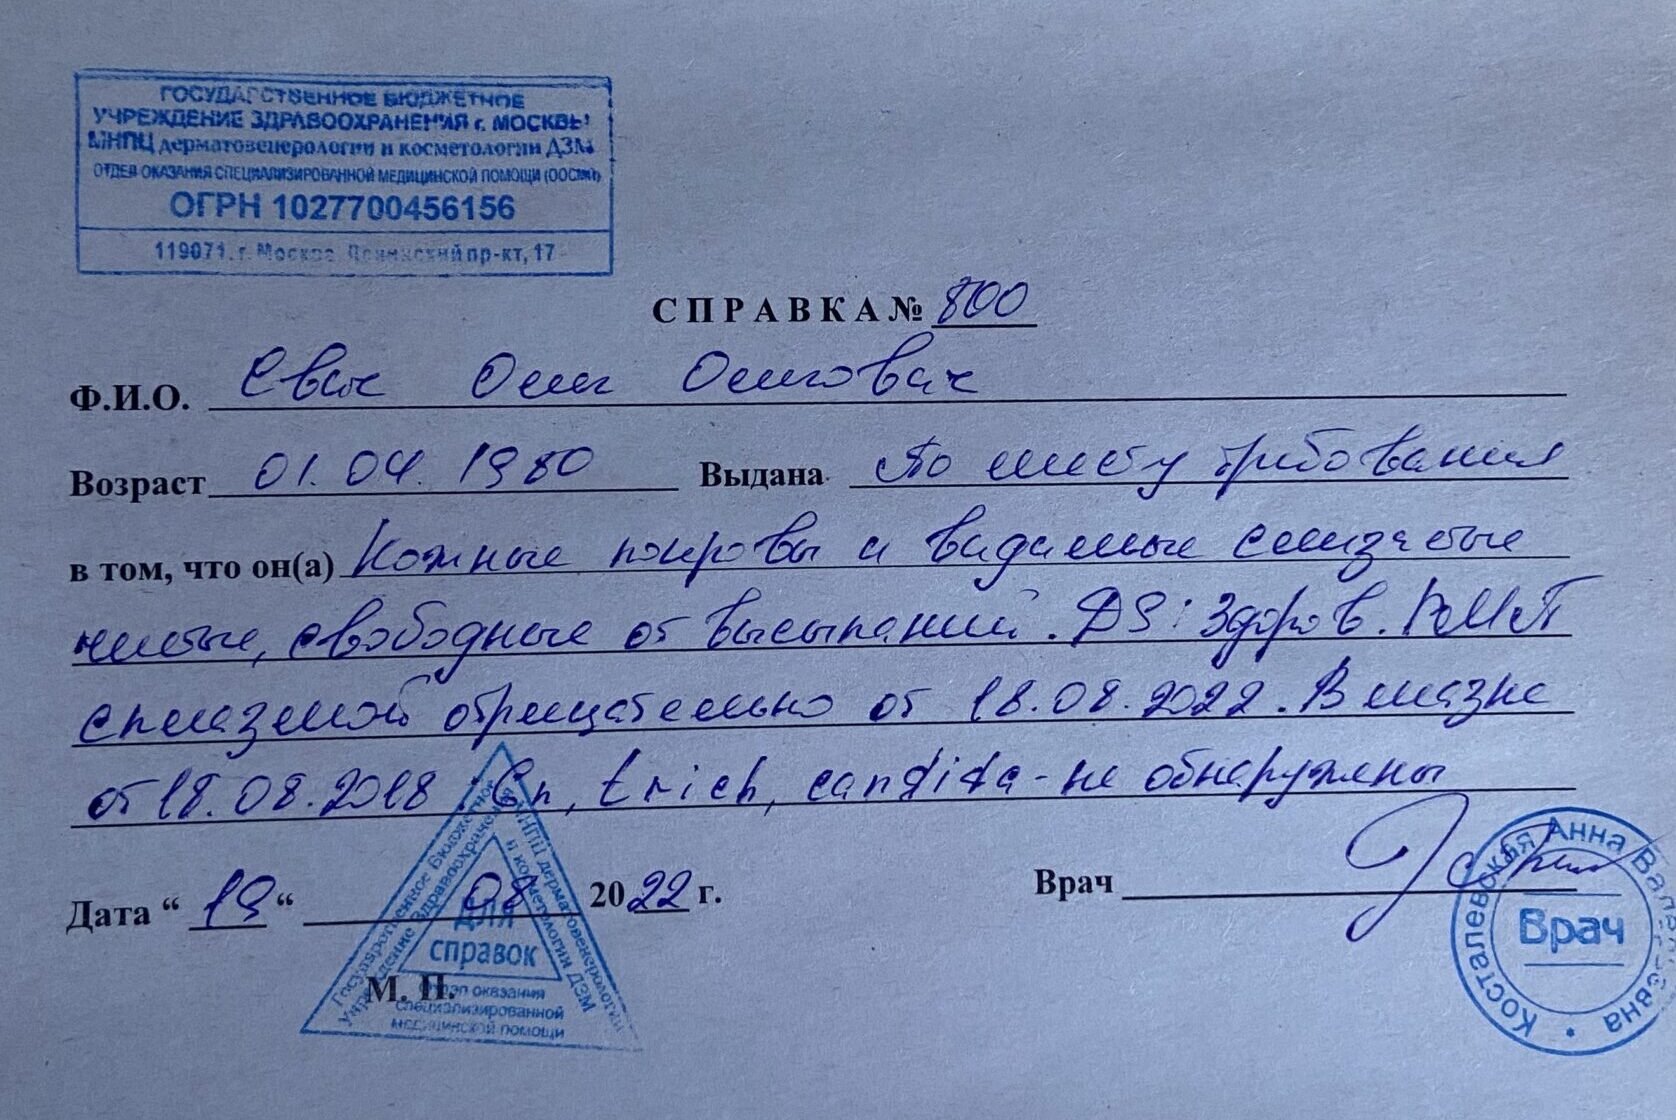 ГОСУДАРСТВЕННОЕ БЮДЖЕТНОЕ
УЧРЕЖДЕНИЕ ЗДРАВООХРАНЕНИЯ г. МОСКВЫ
МНПЦ дерматовенерологии и косметологии ДЗМ
ОТДЕЛ ОКАЗАНИЯ СПЕЦИАЛИЗИРОВАННОЙ МЕДИЦИНСКОЙ ПОМОЩИ
ОГРН 1027700456156
119071, г. Москва, Ленинский пр-кт, 17
СПРАВКА № 800
Ф.И.О. Олег Олегович
Возраст 01.04.1980 Выдана По месту требования
в том, что он(а) Кожные покровы и видимые слизистые
чистые, свободные от высыпаний. DS: Здоров. РМП
с плазмой отрицательно от 18.08.2022. В мазке
от 18.08.2018: Gn, trich, candida - не обнаружены
Дата “ 19 “ 08 2022 г. Врач
М. П.
Государственное Бюджетное
Учреждение Здравоохранения
МНПЦ дерматовенерологии
и косметологии ДЗМ
для
справок
Отдел оказания
специализированной
медицинской помощи
Косталевская Анна Валерьевна
Врач